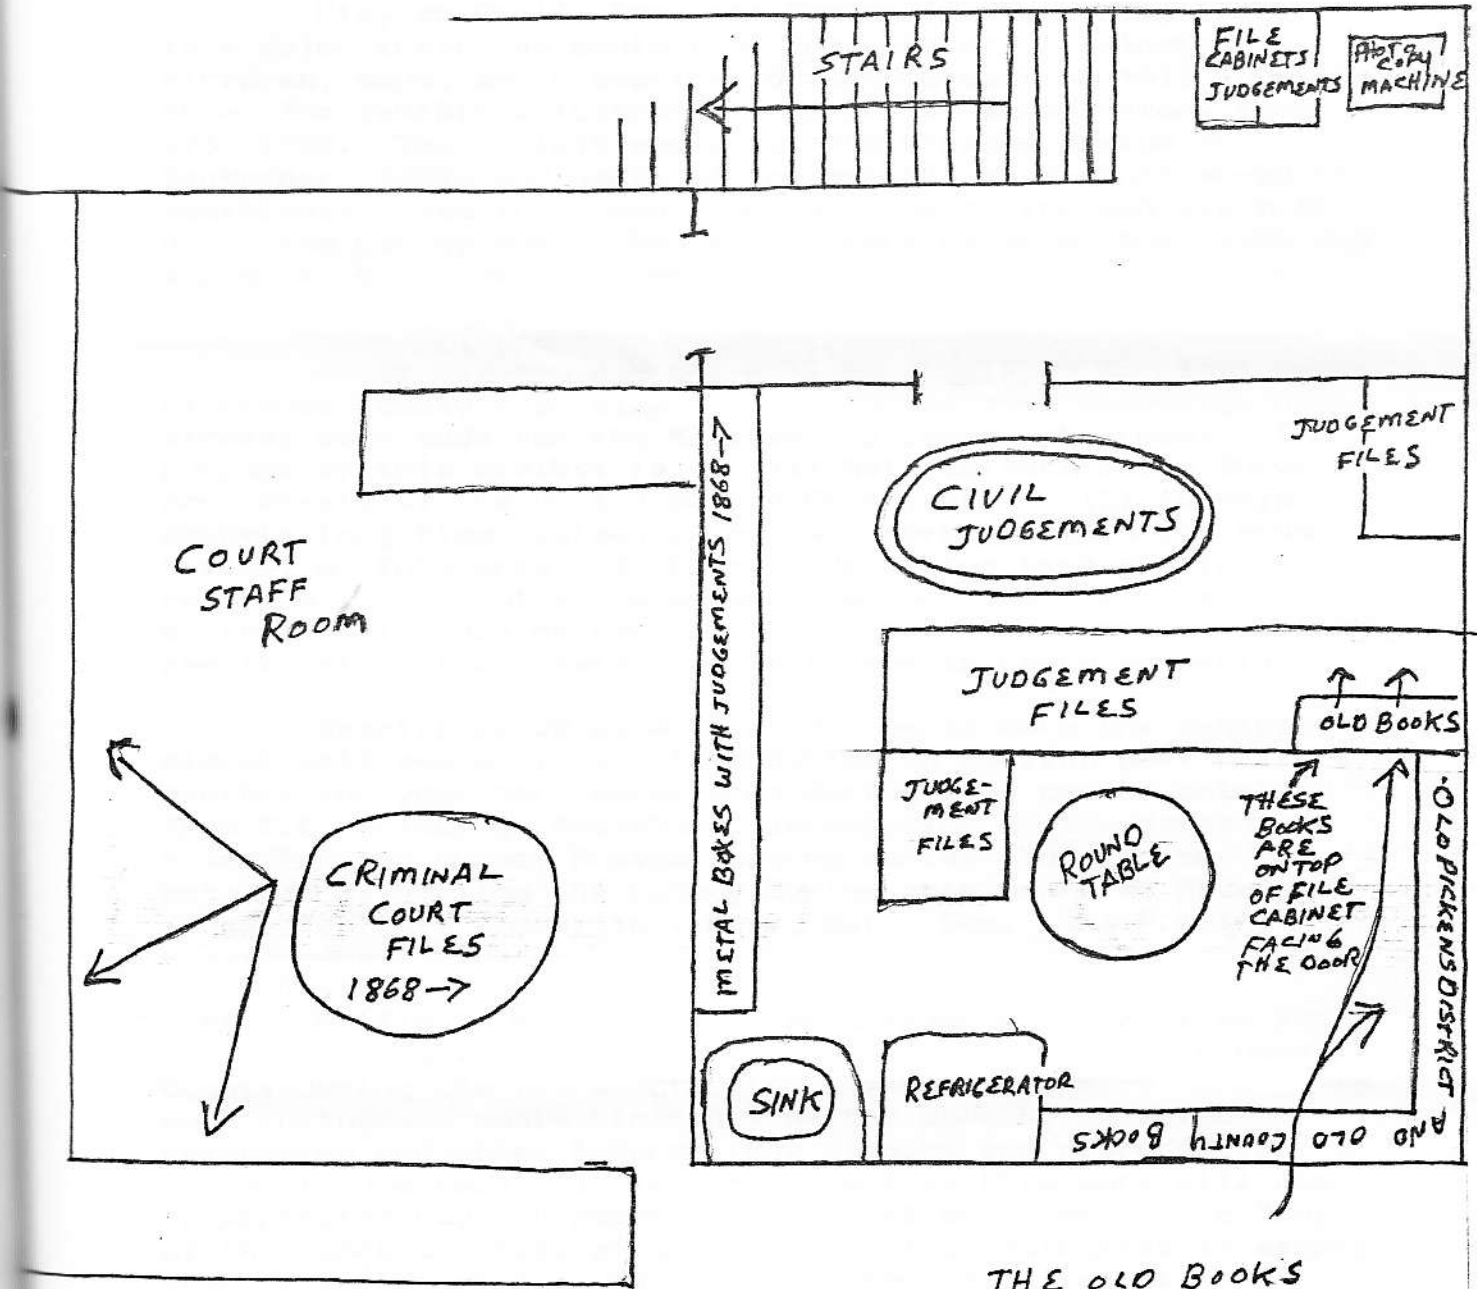 STAIRS
FILE
CABINETS
JUDGEMENTS
PHOTO
COPY
MACHINE
JUDGEMENT
FILES
CIVIL
JUDGEMENTS
COURT
STAFF
ROOM
METAL BOXES WITH JUDGEMENTS 1868→
JUDGEMENT
FILES
OLD BOOKS
JUDGE-
MENT
FILES
ROUND
TABLE
THESE
BOOKS
ARE
ON TOP
OF FILE
CABINET
FACING
THE DOOR
-OLD PICKENS DISTRICT
AND OLD COUNTY BOOKS
CRIMINAL
COURT
FILES
1868→
SINK
REFRIGERATOR
THE OLD BOOKS